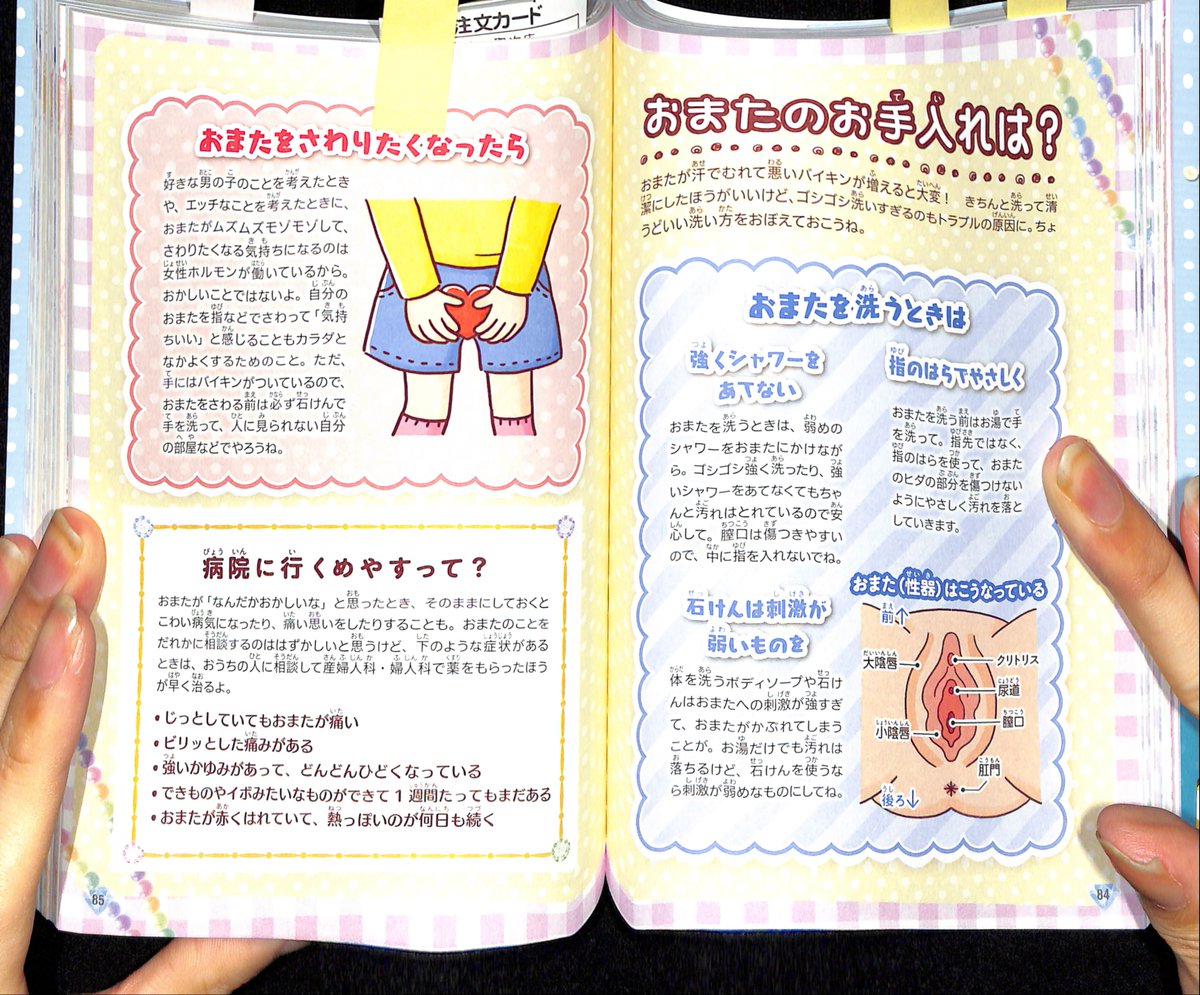 注文カード
おまたのお手入れは？
おまたが汗でむれて悪いバイキンが増えると大変！ きちんと洗って清
潔にしたほうがいいけど、ゴシゴシ洗いすぎるのもトラブルの原因に。ちょ
うどいい洗い方をおぼえておこうね。
おまたを洗うときは
強くシャワーを
あてない
おまたを洗うときは、弱めの
シャワーをおまたにかけなが
ら。ゴシゴシ強く洗ったり、強
いシャワーをあてなくてもちゃ
んと汚れはとれているので安
心して。膣口は傷つきやすい
ので、中に指を入れないでね。
指のはらでやさしく
おまたを洗う前はお湯で手
を洗って。指先ではなく、
指のはらを使って、おまた
のヒダの部分を傷つけない
ようにやさしく汚れを落と
していきます。
石けんは刺激が
弱いものを
体を洗うボディソープや石け
んはおまたへの刺激が強すぎ
て、おまたがかぶれてしまう
ことが。お湯だけでも汚れは
落ちるけど、石けんを使うな
ら刺激が弱めなものにしてね。
おまた（性器）はこうなっている
前↑
大陰唇
クリトリス
尿道
小陰唇
膣口
肛門
後ろ↓
84
おまたをさわりたくなったら
好きな男の子のことを考えたとき
や、エッチなことを考えたときに、
おまたがムズムズモゾモゾして、
さわりたくなる気持ちになるのは
女性ホルモンが働いているから。
おかしいことではないよ。自分の
おまたを指などでさわって「気持
ちいい」と感じることもカラダと
なかよくするためのこと。ただ、
手にはバイキンがついているので、
おまたをさわる前は必ず石けんで
手を洗って、人に見られない自分
の部屋などでやろうね。
病院に行くめやすって？
おまたが「なんだかおかしいな」と思ったとき、そのままにしておくと
こわい病気になったり、痛い思いをしたりすることも。おまたのことを
だれかに相談するのははずかしいと思うけど、下のような症状がある
ときは、おうちの人に相談して産婦人科・婦人科で薬をもらったほう
が早く治るよ。
•じっとしていてもおまたが痛い
•ビリッとした痛みがある
•強いかゆみがあって、どんどんひどくなっている
•できものやイボみたいなものができて1週間たってもまだある
•おまたが赤くはれていて、熱っぽいのが何日も続く
85